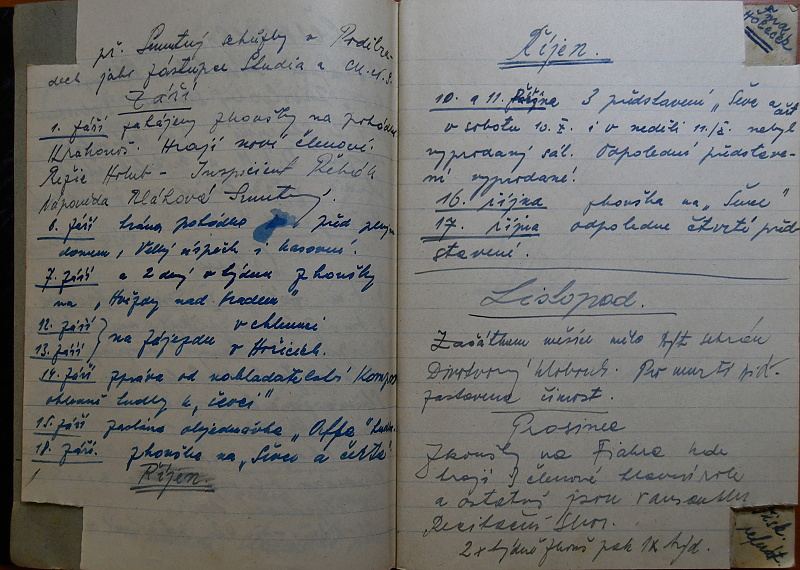 př. Smutný schůzky v Poděbra-
dech jako zástupce Studia a
Září
1. září zahájeny zkoušky na pohádku
Krakonoš. Hrají noví členové.
Režie Holub - Inspicient Řehák
Nápověda Smutný.
6. září hrána pohádka před plným
domem, Velký úspěch i kasovní.
7. září a 2 dny v týdnu zkoušky
na „Hvězdy nad hradem"
12. září v Chlumci
13. září na zájezdu v Hořicích.
14. září zpráva od nakladatelství
ohledně hudby k „ševci"
15. září zaslána objednávka „Alfa"
18. září. zkouška na „Ševce a čerta"
Říjen.
Říjen.
10. a 11. října 3 představení „Švec a čert
v sobotu 10./X. i v neděli 11./X. nebyl
vyprodaný sál. Odpolední představe-
ní vyprodané.
16. října zkouška na „Švec"
17. října odpoledne čtvrté před
stavení.
Listopad.
Začátkem měsíce mělo být sehrán
Divotvorný klobouk. Pro
zastavena činost.
Prosinec
Zkoušky na Fidlo kde
hrají 3 členové hlavní role
a ostatní jsou
Recitační sbor.
2x týdně zkouš pak 1x týd.